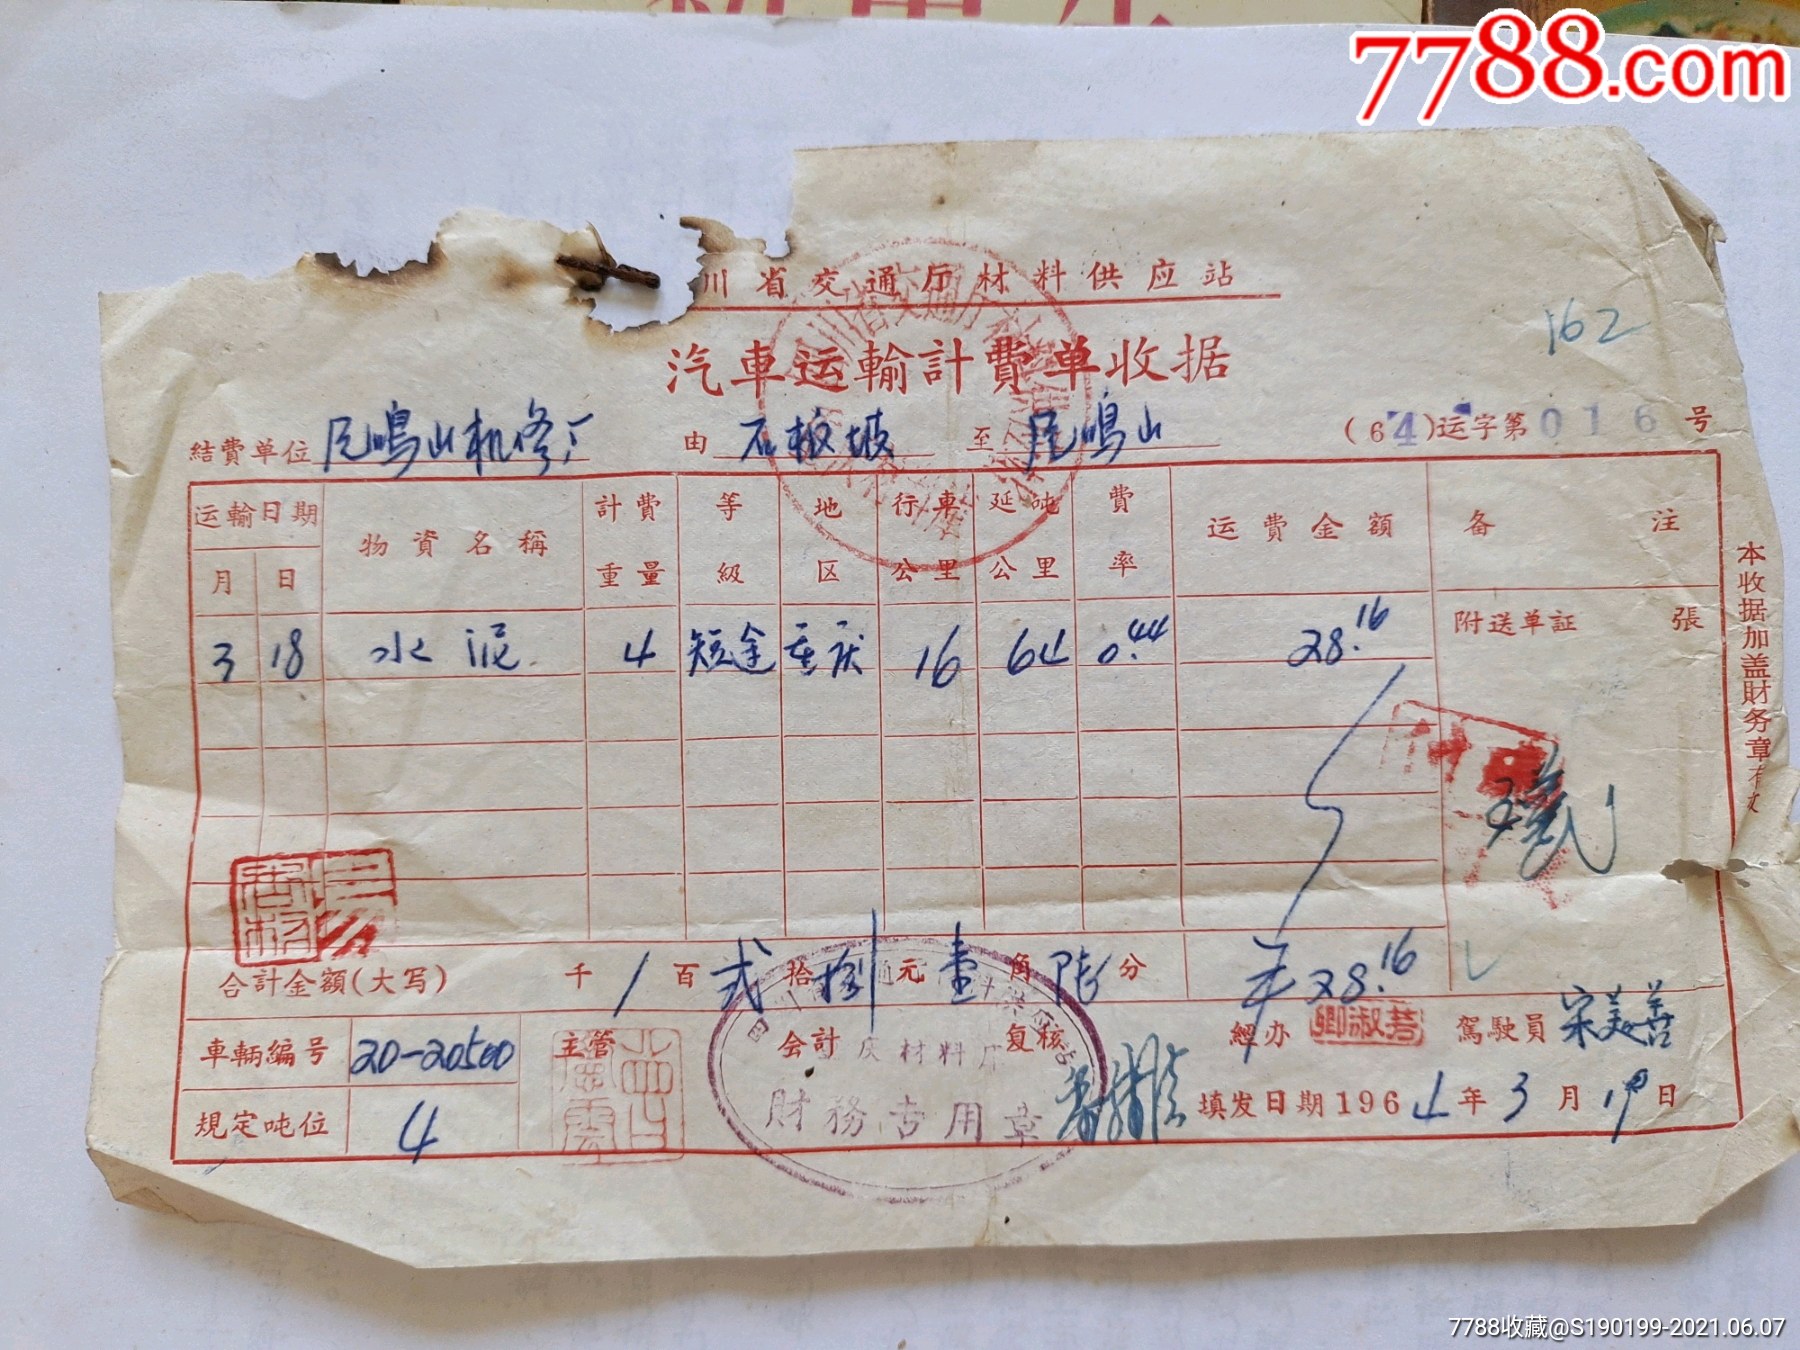 7788.com
川省交通厅材料供应站
汽車运輸計費单收据
162
結費单位 凤鳴山机修厂 由 石板坡 至 凤鳴山 (64)运字第016号
运輸日期 物資名稱 計費重量 等級 地区 行車公里 延吨公里 費率 运費金額 备注
月 日
3 18 水泥 4 短途 重庆 16 64 0.44 28.16 附送单証 張
本收据加盖財务章有效
付
合計金額(大写) 千 百 弍 拾 捌 元 壹 角 陆 分 28.16
車輌編号 20-20500 主管 会計 复核 經办 駕駛員 宋美善
規定吨位 4 填发日期1964年3月19日
財務专用章
7788收藏@S190199-2021.06.07